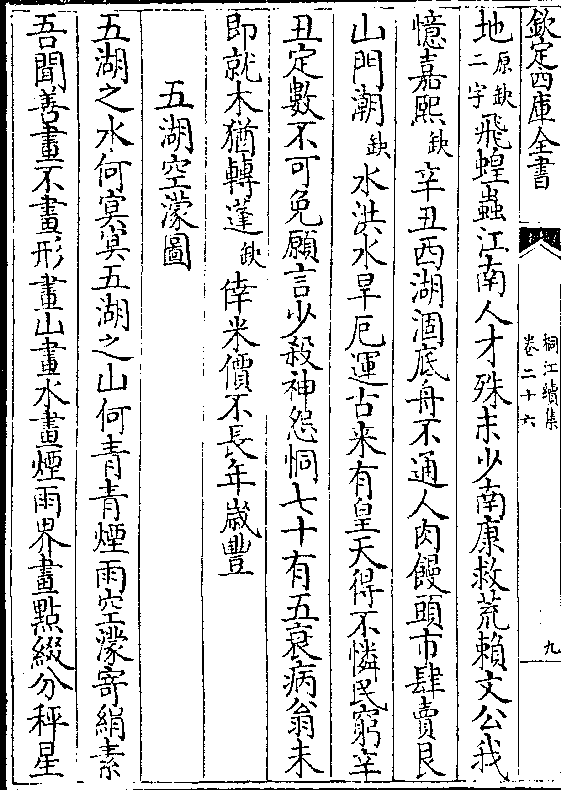 欽定四庫全書
桐江續集
卷二十六
九
地原缺二字飛蝗蟲江南人才殊未少南康救荒賴文公我
憶嘉熙缺辛丑西湖涸底舟不通人肉饅頭市肆賣艮
山門潮缺水洪水旱厄運古来有皇天得不憐民窮辛
丑定數不可免願言少殺神怨恫七十有五衰病翁未
即就木猶轉蓬缺倖米價不長年嵗豐
五湖空濛圖
五湖之水何冥冥五湖之山何青青煙雨空濛寄絹素
吾聞善畫不畫形畫山畫水畫煙雨界畫點綴分秤星